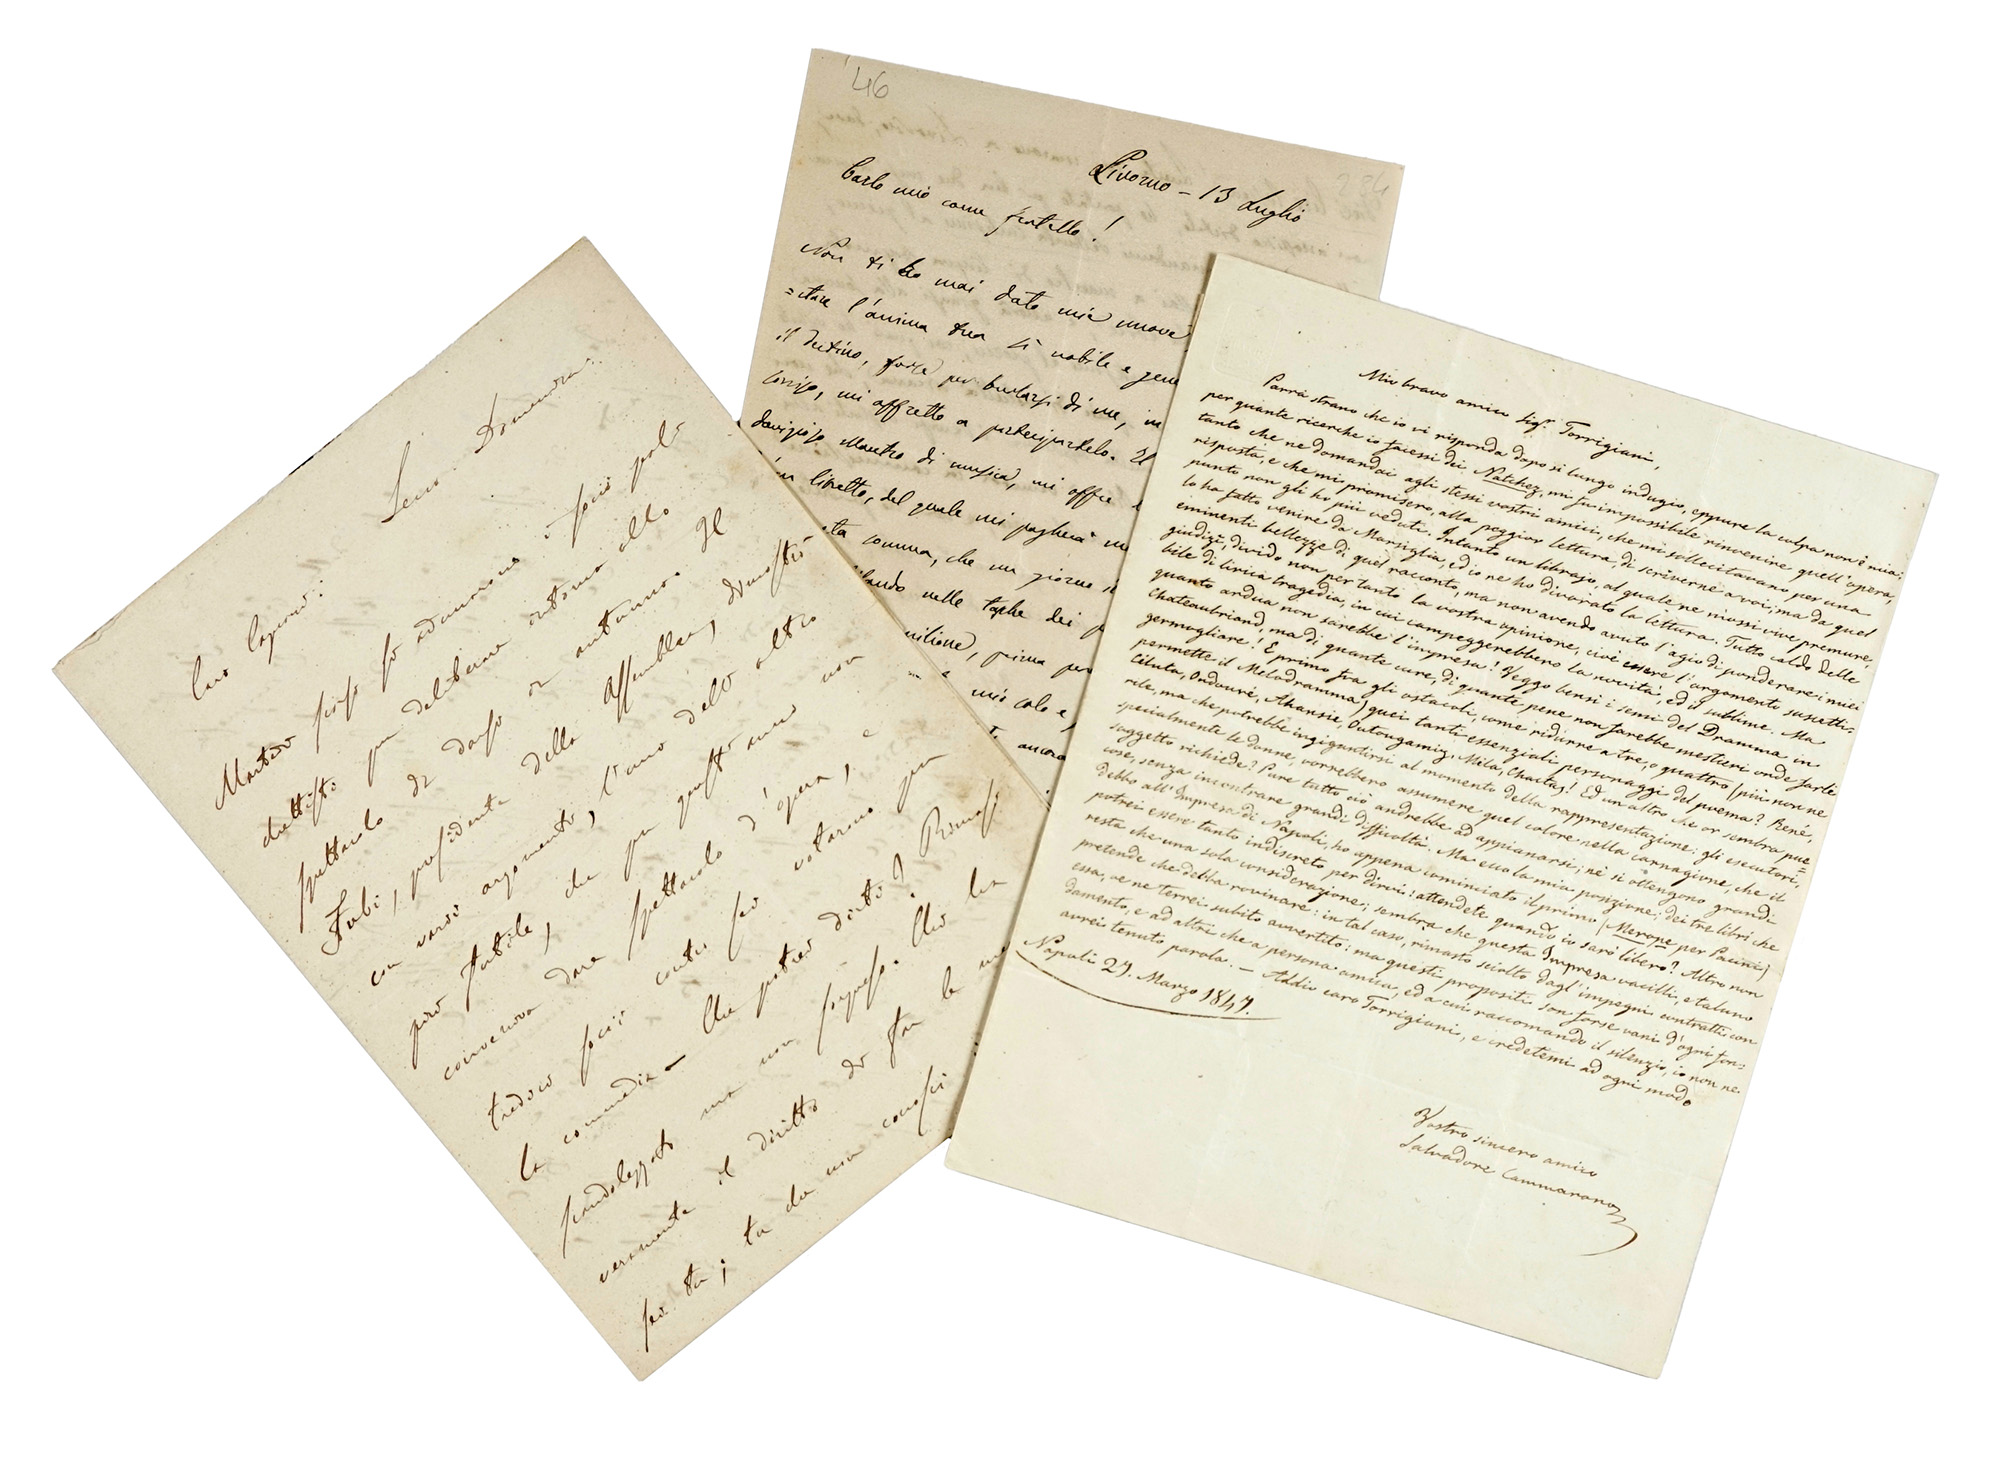 Lecco. Domenica.
Caro Capponi:
Martedì scorso si adunarono i socii palc
chettisti per deliberare intorno allo
spettacolo di darsi in autunno. Il
Fubi, presidente della Assemblea, dimostrò
con varii argomenti, l'uno dell'altro
più futile, che per quest'anno non
conveniva dare spettacolo d'opera, e
tredici socii contro sei votarono per
la commedia — Che potevo dirti? Rimasi
scandolezzato ma non sorpreso. Chi ha
veramente il diritto di far la
sei tu; tu che non conosci
46
Livorno — 13 Luglio
Carlo mio come fratello!
Non ti ho mai dato mie nuove
=stare l'anima tua sì nobile e gene
il destino, forse per burlarsi di me, in
corriso, mi affretto a parteciparlo. Il
Maestro di musica, mi offre
un libretto, del quale mi pagherà
ta comma, che un giorno
lando nelle tasche dei
milione, prima
mio solo e
ancora
Mio bravo amico Sigr. Torrigiani,
Parrà strano che io vi risponda dopo sì lungo indugio, eppure la colpa non è mia;
per quante ricerche io facessi dei Natchez, mi fu impossibile rinvenire quell'opera,
tanto che ne domandai agli stessi vostri amici, che mi sollecitavano per una
risposta, e che mi promisero, alla peggior lettura, di scriverne a voi; ma da quel
punto non gli ho più veduti. Intanto un librajo, al quale ne mossi vive premure,
lo ha fatto venire da Marsiglia, ed io ne ho divorato la lettura. Tutto caldo delle
eminenti bellezze di quel racconto, ma non avendo avuto l'agio di ponderare i miei
giudizî, divido non per tanto la vostra opinione, cioè essere l'argomento suscetti-
bile di lirica tragedia, in cui campeggerebbero la novità, ed il sublime. Ma
quanto ardua non sarebbe l'impresa! Veggo bensì i semi del Dramma in
Chateaubriand, ma di quante cure, di quante pene non farebbe mestieri onde farlo
germogliare! E primo fra gli ostacoli, come ridurre a tre, o quattro (più non ne
permette il Melodramma) quei tanti essenziali personaggi del poema? René,
Celuta, Ondouré, Akansie, Outougamiz, Mila, Chactas! Ed un altro che or sembra pue=
rile, ma che potrebbe ingigantirsi al momento della rappresentazione: gli esecutori,
specialmente le donne, vorrebbero assumere quel colore nella carnagione, che il
soggetto richiede? Pure tutto ciò andrebbe ad appianarsi; né si ottengono grandi
cose, senza incontrare grandi difficoltà. Ma ecco la mia posizione; dei tre libri che
debbo all'Impresa di Napoli, ho appena cominciato il primo (Merope per Pacini)
potrei essere tanto indiscreto per dirvi: attendete quando io sarò libero? Altro non
resta che una sola considerazione; sembra che questa Impresa vacilli, e taluno
pretende che debba rovinare: in tal caso, rimasto sciolto dagl'impegni contratti con
essa, ve ne terrei subito avvertito: ma questi propositi son forse vani d'ogni fon=
damento, e ad altri che a persona amica, ed a cui raccomando il silenzio, io non ne
avrei tenuto parola. — Addio caro Torrigiani, e credetemi ad ogni modo
Napoli 27. Marzo 1847.
Vostro sincero amico
Salvadore Cammarano